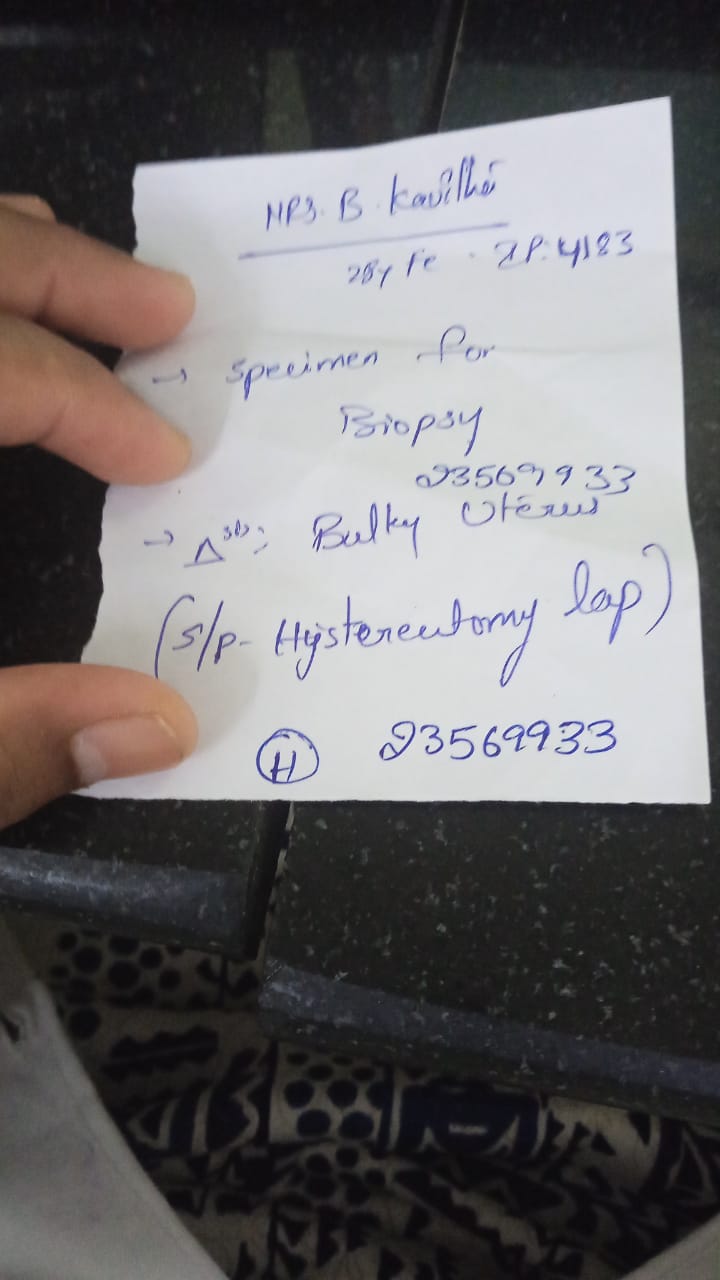 MRS. B. Kavitha
28y Fe . IP: 4183
→ Specimen for
Biopsy
23569933
→ Δsis: Bulky Uterus
(s/p- Hysterectomy lap)
(H) 23569933